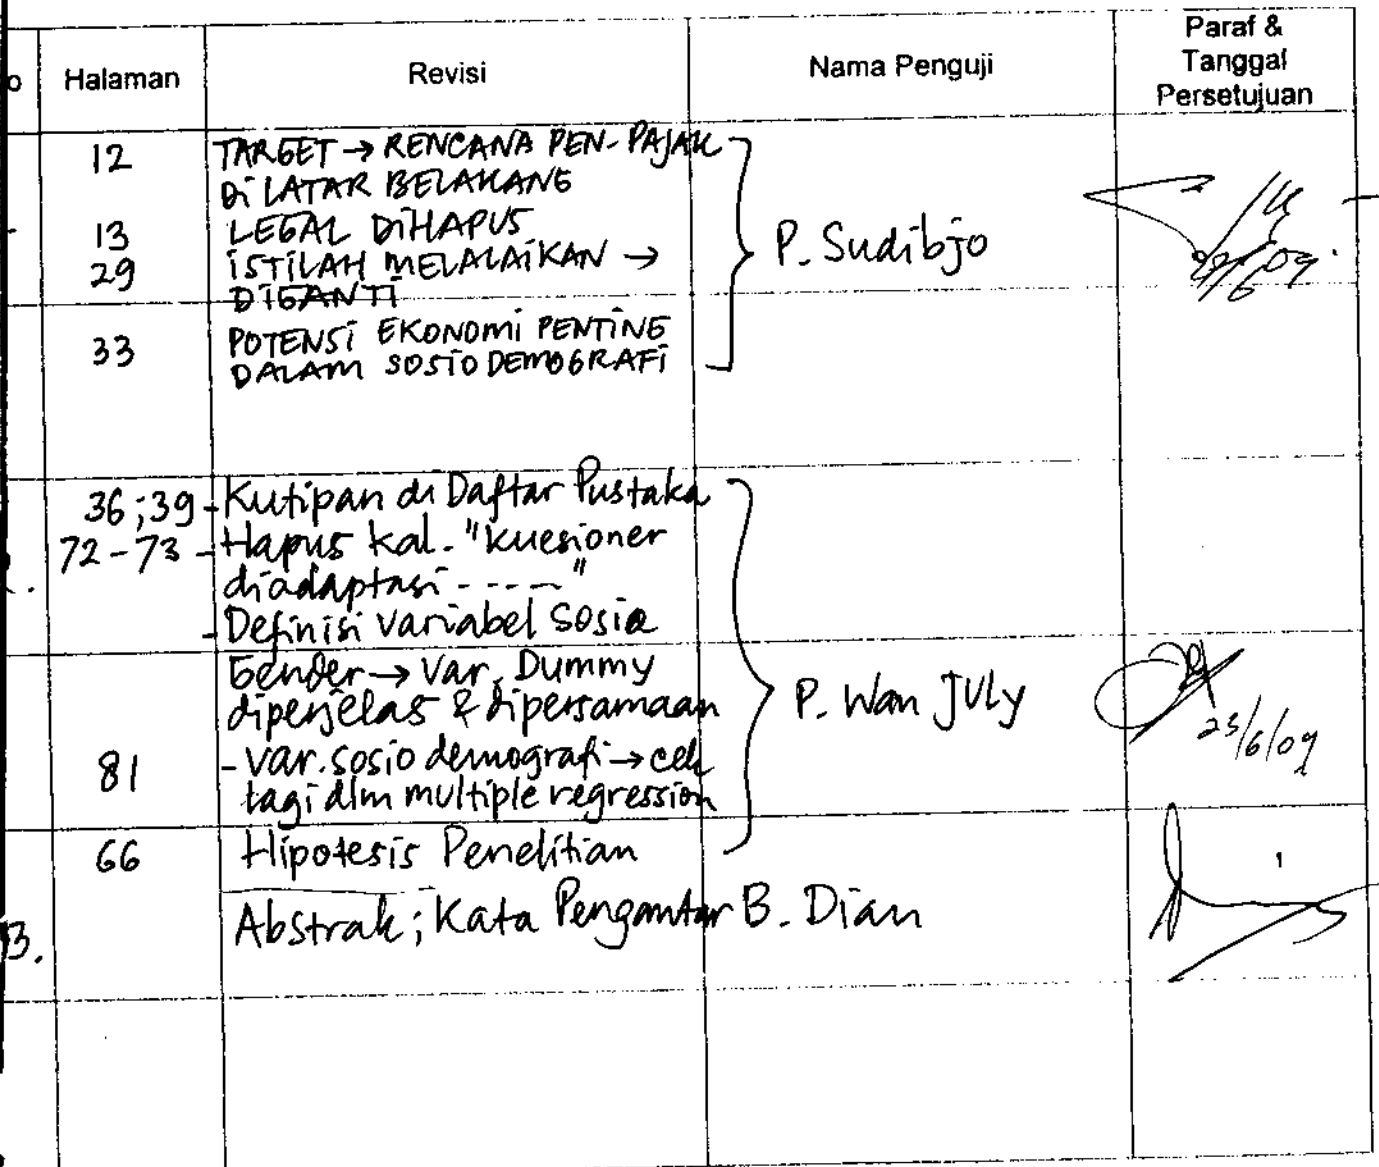 o Halaman Revisi Nama Penguji Paraf & Tanggal Persetujuan
12 TARGET → RENCANA PEN-PAJAK
Di LATAR BELAKANG
13 LEGAL DIHAPUS
29 ISTILAH MELALAIKAN →
DIGANTI
P. Sudibjo
33 POTENSI EKONOMI PENTING
DALAM SOSIO DEMOGRAFI
36;39 - Kutipan di Daftar Pustaka
72-73 - Hapus kal. "kuesioner
diadaptasi -----"
- Definisi variabel Sosio
Gender → Var. Dummy
diperjelas & dipersamaan
P. Wan July
25/6/09
81 - Var. sosio demografi → cek
lagi dlm multiple regression
66 Hipotesis Penelitian
3. Abstrak; Kata Pengantar B. Dian